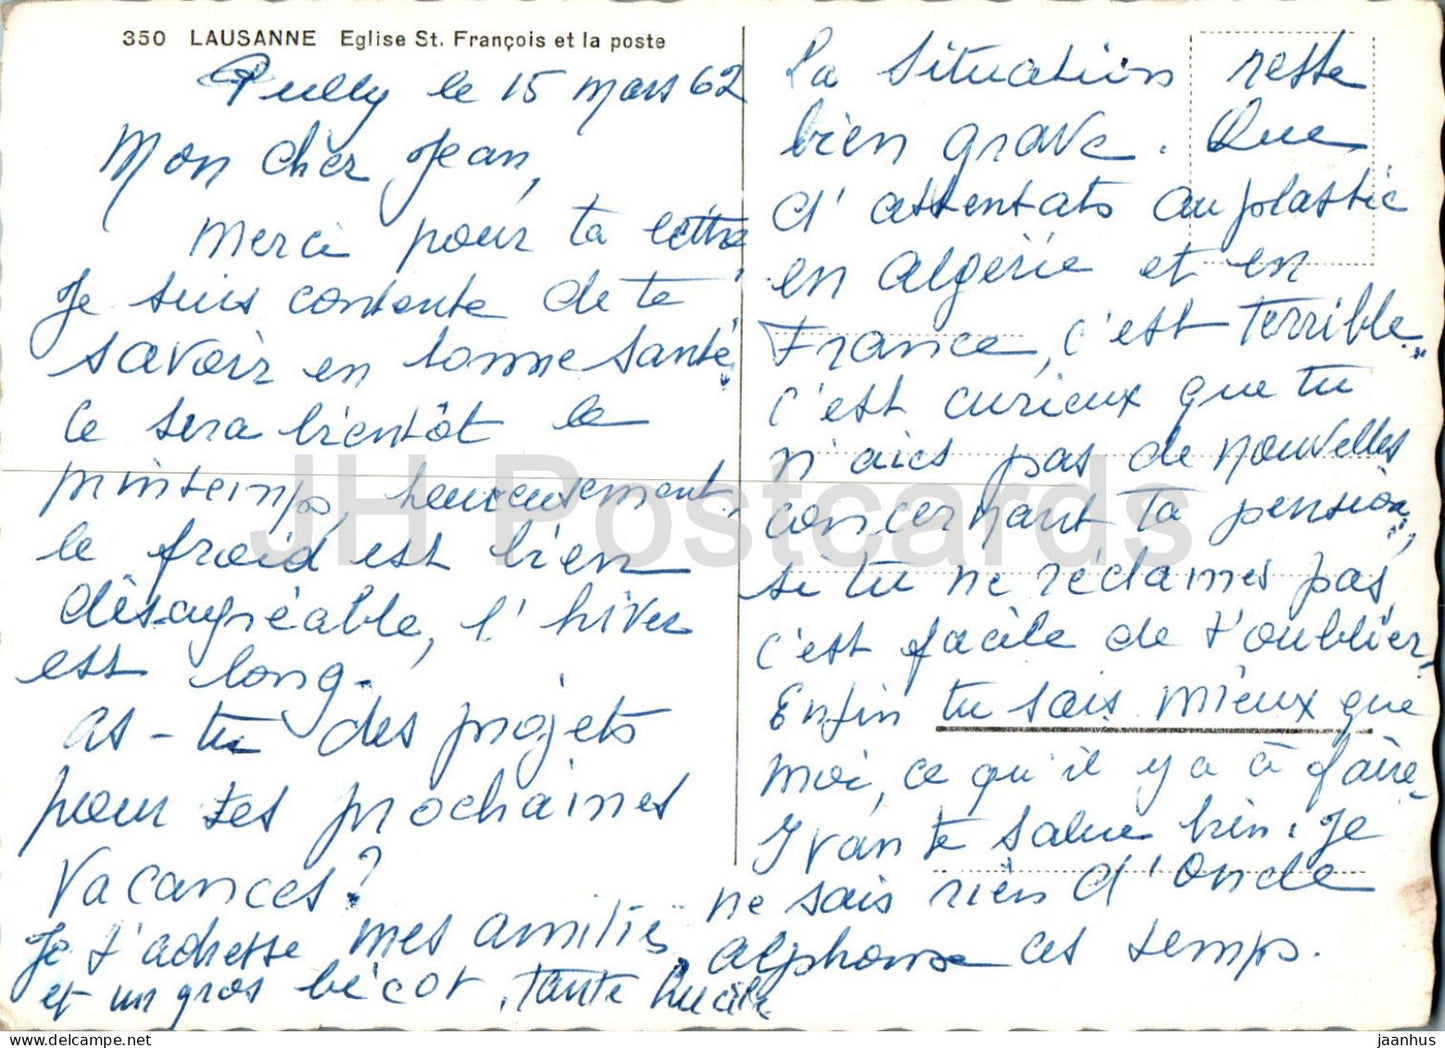 350 LAUSANNE Eglise St. François et la poste
Pully le 15 mars 62
Mon cher Jean,
Merci pour ta lettre,
je suis contente de te
savoir en bonne santé.
Ce sera bientôt le
printemps, heureusement,
le froid est bien
désagréable, l'hiver
est long.
as-tu des projets
pour tes prochaines
vacances?
La situation reste
bien grave. Que
d'attentats au plastic
en algérie et en
France, c'est terrible.
c'est curieux que tu
n'aies pas de nouvelles
concernant ta pension,
si tu ne réclames pas
c'est facile de t'oublier.
Enfin tu sais mieux que
moi, ce qu'il y a à faire.
Yvan te salue bien. je
ne sais rien d'Oncle
alphonse ces temps.
Je t'adresse mes amitiés
et un gros bécot. Tante Lucile
JH Postcards
jaanhus